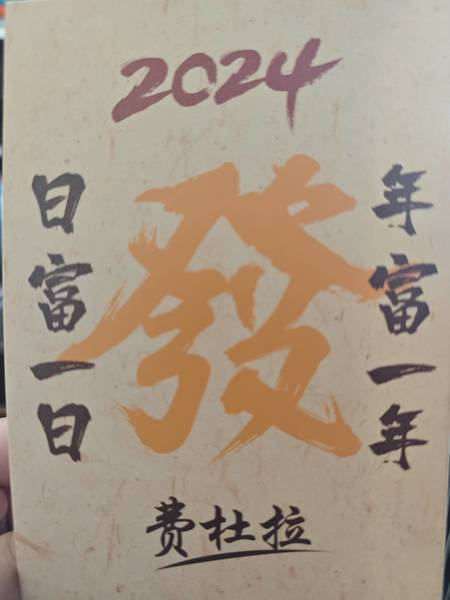 2024
日富一日
發
年富一年
费杜拉